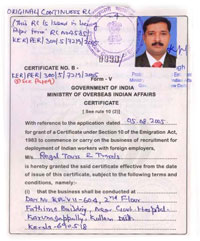 ORIGINALLY CONTINUOUS RC
(This RC is issued in lieu of
CERTIFICATE NO. B -
Form - V
GOVERNMENT OF INDIA
MINISTRY OF OVERSEAS INDIAN AFFAIRS
CERTIFICATE
[ See rule 10 (2)]
With reference to the application dated 05.08.2005
for grant of a Certificate under Section 10 of the Emigration Act,
1983 to commence or carry on the business of recruitment for
deployment of Indian workers with foreign employers.
M/s Royal Tours & Travels
is hereby granted the said certificate effective from the date
of issue of this certificate, subject to the following terms and
conditions, namely:-
(i) that the business shall be conducted at
2nd Floor
Fathima Building, Near Govt. Hospital
Karunagappally, Kollam Distt.
Kerala-690518